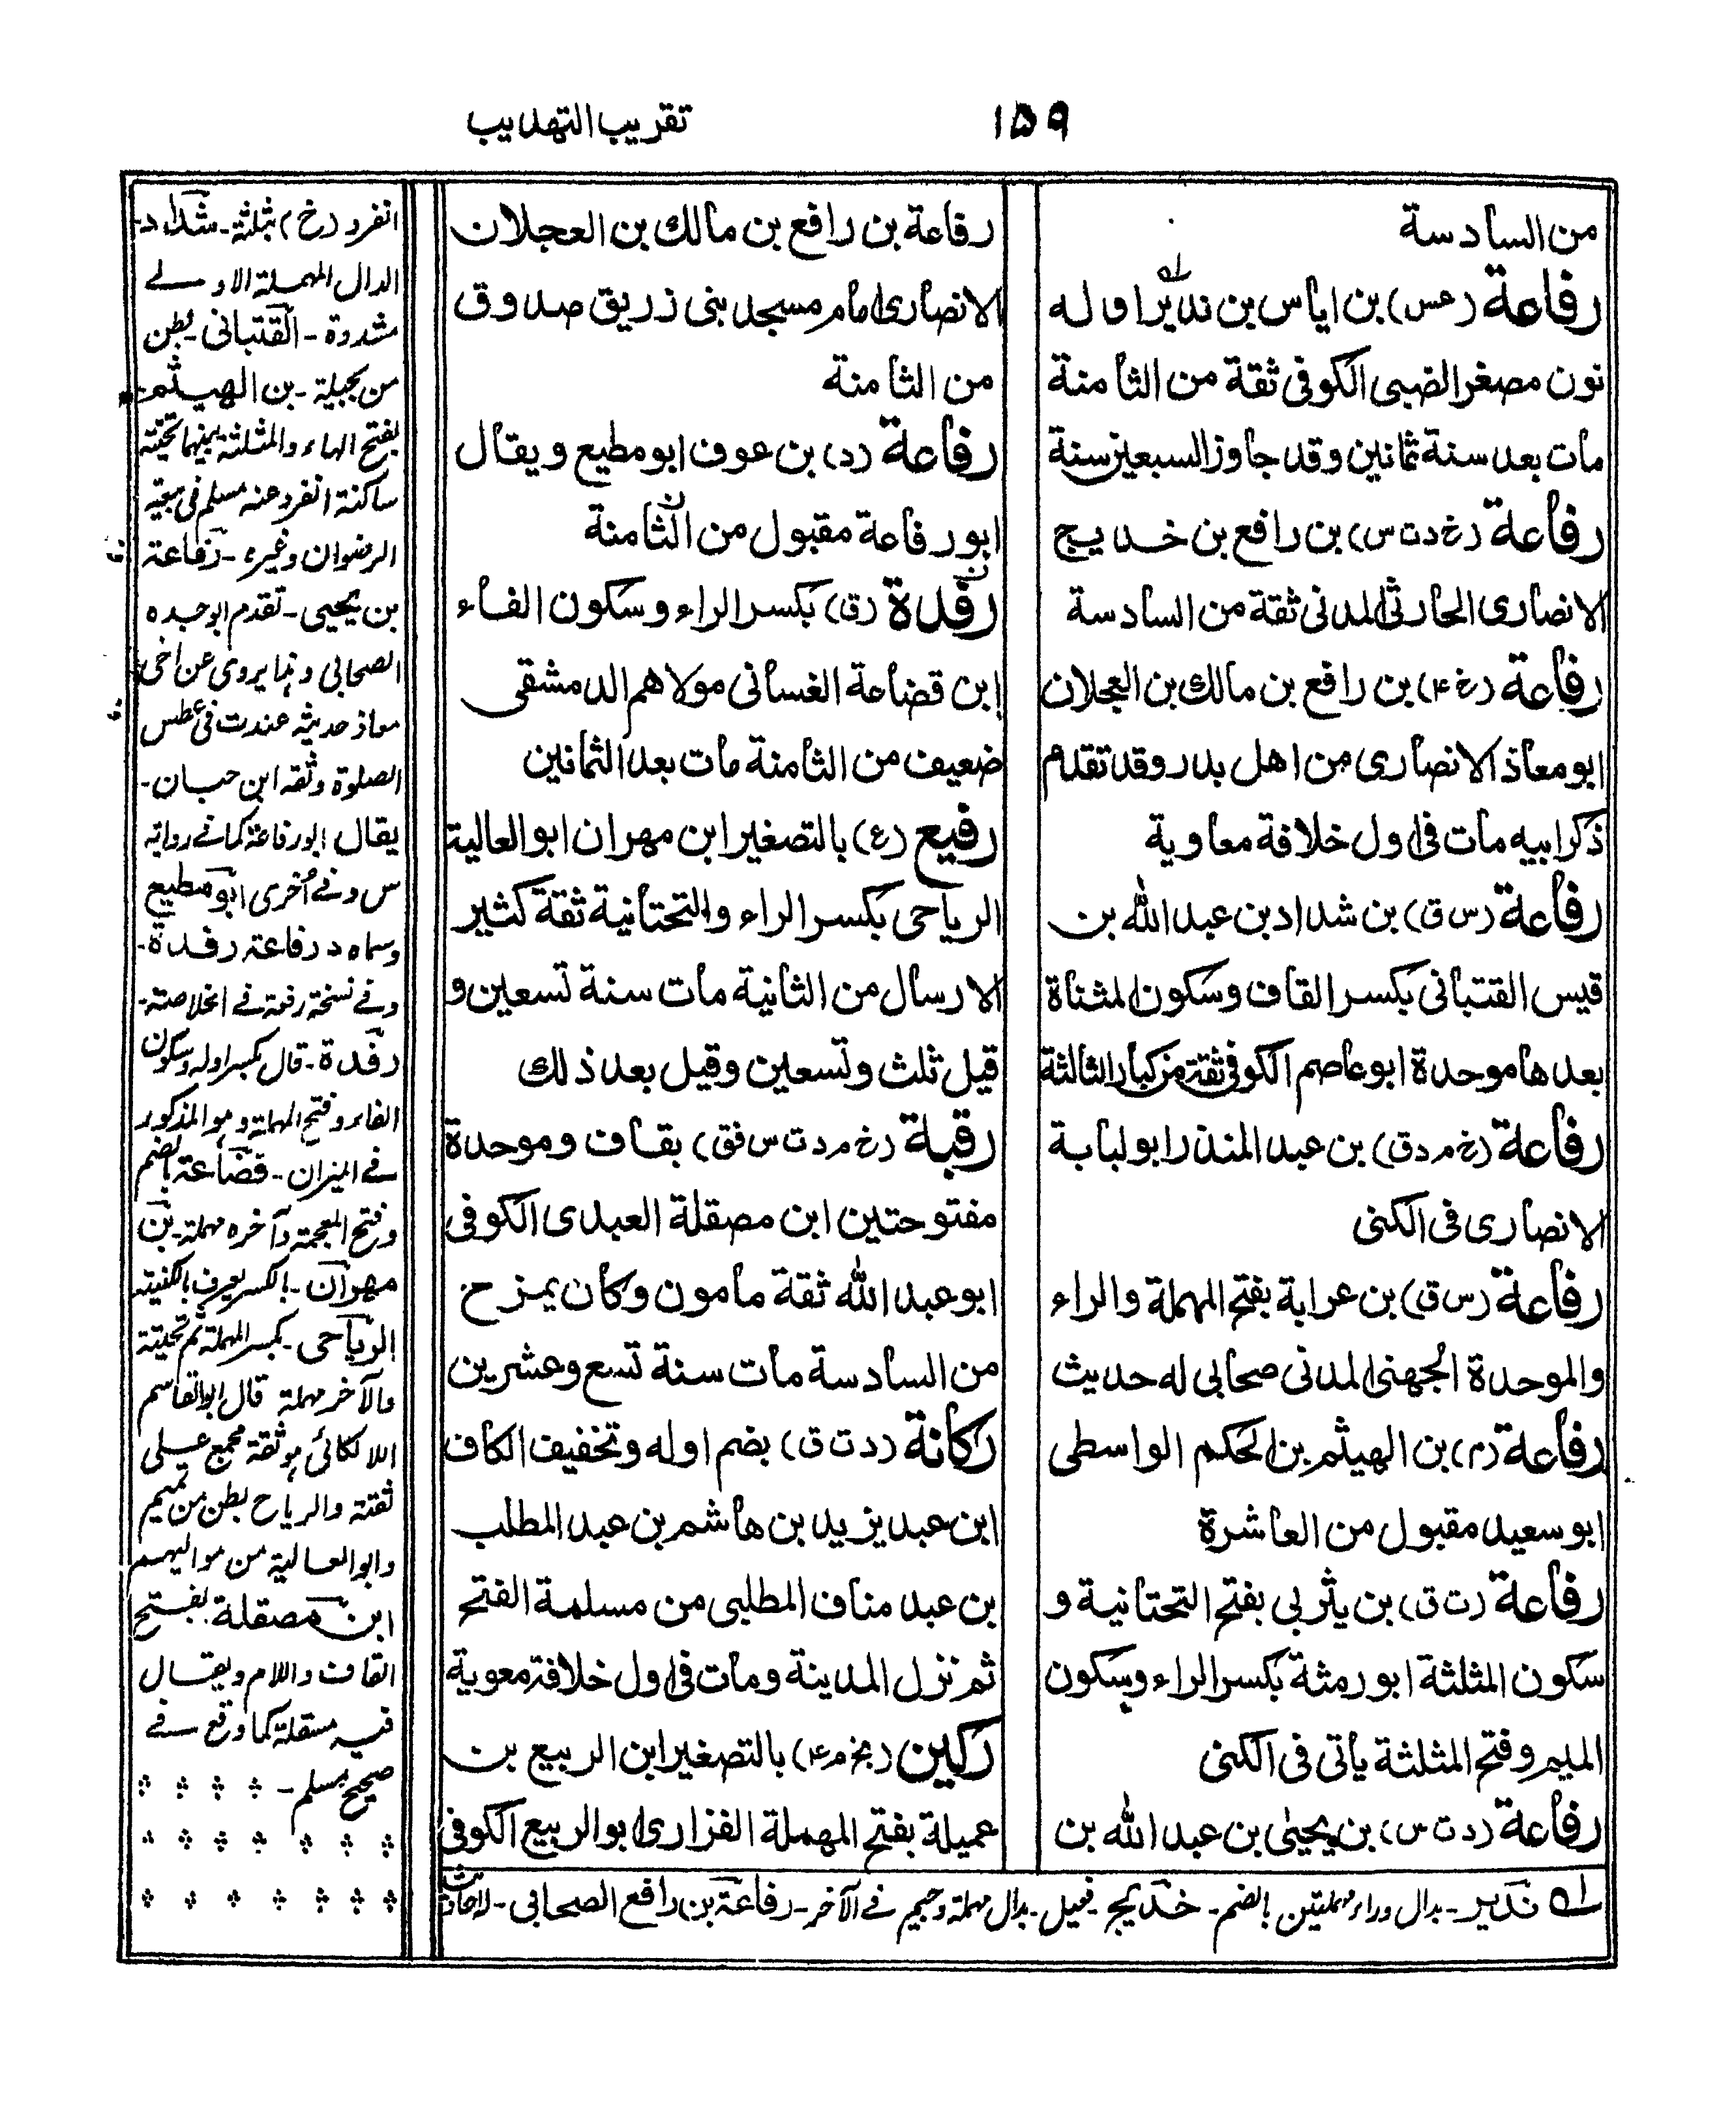 ۱۵۹
تقريب التهذيب
من السادسة
رفاعة (عس) بن اياس بن نذير اوله
نون مصغر الضبى الكوفى ثقة من الثامنة
مات بعد سنة ثمانين وقد جاوز السبعين سنة
رفاعة (خ د ت س) بن رافع بن خديج
الانصارى الحارثى المدنى ثقة من السادسة
رفاعة (خ ۴) بن رافع بن مالك بن العجلان
ابو معاذ الانصارى من اهل بدر وقد تقدم
ذكر ابيه مات فى اول خلافة معاوية
رفاعة (س ق) بن شداد بن عبد الله بن
قيس القتبانى بكسر القاف وسكون المثناة
بعدها موحدة ابو عاصم الكوفى ثقة من كبار الثالثة
رفاعة (خ م د ق) بن عبد المنذر ابو لبابة
الانصارى فى الكنى
رفاعة (س ق) بن عرابة بفتح المهملة والراء
والموحدة الجهنى المدنى صحابى له حديث
رفاعة (م) بن الهيثم بن الحكم الواسطى
ابو سعيد مقبول من العاشرة
رفاعة (ت ق) بن يثربى بفتح التحتانية و
سكون المثلثة ابو رمثة بكسر الراء وسكون
الميم وفتح المثلثة ياتى فى الكنى
رفاعة (د ت س) بن يحيى بن عبد الله بن
رفاعة بن رافع بن مالك بن العجلان
الانصارى امام مسجد بنى زريق صدوق
من الثامنة
رفاعة (د) بن عوف ابو مطيع ويقال
ابو رفاعة مقبول من الثامنة
رفدة (ق) بكسر الراء وسكون الفاء
ابن قضاعة الغسانى مولاهم الدمشقى
ضعيف من الثامنة مات بعد الثمانين
رفيع (ع) بالتصغير ابن مهران ابو العالية
الرياحى بكسر الراء والتحتانية ثقة كثير
الارسال من الثانية مات سنة تسعين و
قيل ثلث وتسعين وقيل بعد ذلك
رقبة (خ م د ت س فق) بقاف وموحدة
مفتوحتين ابن مصقلة العبدى الكوفى
ابو عبد الله ثقة مامون وكان يمزح
من السادسة مات سنة تسع وعشرين
ركانة (د ت ق) بضم اوله وتخفيف الكاف
ابن عبد يزيد بن هاشم بن عبد المطلب
بن عبد مناف المطلبى من مسلمة الفتح
ثم نزل المدينة ومات فى اول خلافة معوية
ركين (بخ م ۴) بالتصغير ابن الربيع بن
عميلة بفتح المهملة الفزارى ابو الربيع الكوفى
انفرد (خ) بثلثة - شداد -
الدال المهملة الاولے
مشددة - القتبانى - بطن
من بجيلة - بن الهيثم -
بفتح الهاء والمثلثة بينهما تحتية
ساكنة انفرد عنه مسلم فى بيعة
الرضوان وغيره - رفاعة
بن يحيى - تقدم ابو جده
الصحابى وهذا يروى عن اخى
معاذ حديثه عند ت فى عطس
الصلوة وثقه ابن حبان -
يقال ابو رفاعة كما فے رواية
س وفے اخرى ابو مطيع
وسماه د رفاعة رفدة -
وفے نسخة رفدة فے الخلاصة -
رفدة - قال بكسر اوله وسكون
الفاء وفتح المهملة وهو المذكور
فے الميزان - قضاعة بالضم
وفتح المعجمة وآخره مهملة - بن
مهران - بالكسر يعرف بالكنية
الرياحى - بكسر المهملة ثم تحتية
والآخر مهملة قال ابو القاسم
اللالكائى هو ثقة مجمع على
ثقته والرياح بطن من تميم
وابو العالية من مواليهم
ابن مصقلة بفتح
القاف واللام ويقال
فيه مسقلة كما وقع فے
صحيح مسلم -
له نذير - بدال وراء مهملتين بالضم - خديج - فعيل - بدال مهملة وجيم فے الآخر - رفاعة بن رافع الصحابى - له احاديث